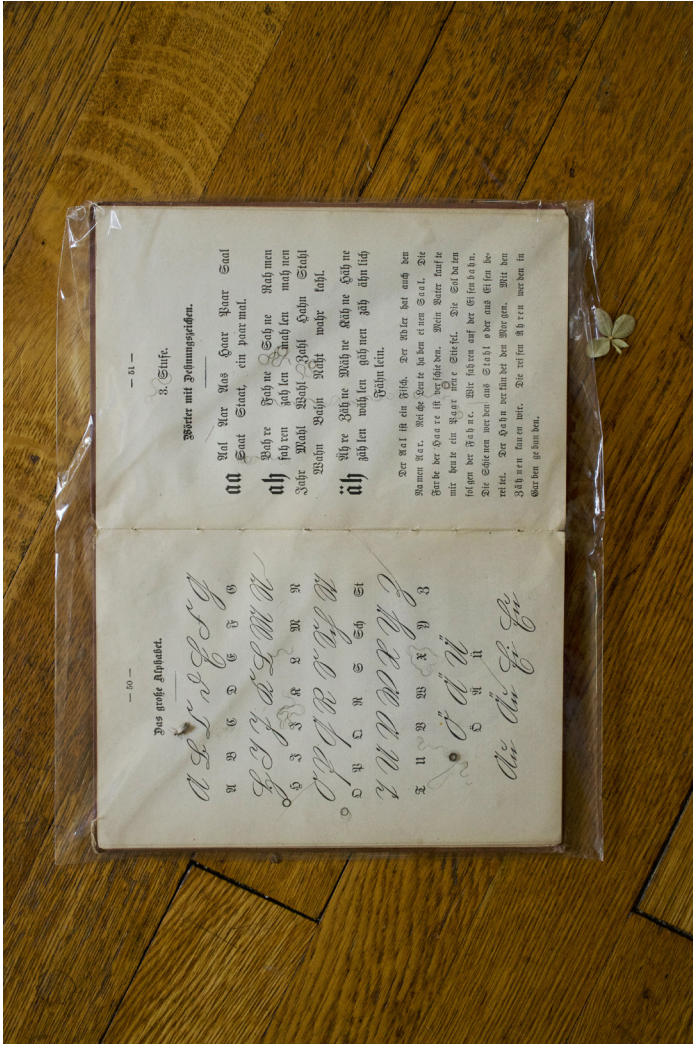 — 50 —
Das große Alphabet.
A B C D E F G
A B C D E F G
H I J K L M N
H I J K L M N
O P Q R S Sch St
O P Q R S Sch St
T U V W X Y Z
T U V W X Y Z
Ö Ä Ü
Ö Ä Ü
Au Äu Ei Eu
— 51 —
3. Stufe.
Wörter mit Dehnungszeichen.
aa Aal Aar Aas Haar Paar Saal
Saat Staat, ein paar mal.
ah Bah re Fah ne Sah ne Rah men
fah ren zah len mah len mah nen
Jahr Mahl Wahl Zahl Hahn Stahl
Wahn Bahn Naht wahr kahl.
äh Äh re Zäh ne Mäh ne Käh ne Häh ne
zäh len wäh len gäh nen zäh ähn lich
Fähn lein.
Der Aal ist ein Fisch. Der Ad ler hat auch den
Na men Aar. Rei che Leu te ha ben ei nen Saal. Die
Far be der Haare ist ver schie den. Mein Vater kauf te
mir heu te ein Paar neu e Stie fel. Die Sol da ten
fol gen der Fahne. Wir fah ren auf der Ei sen bahn.
Die Schie nen wer den aus Stahl o der aus Ei sen be-
rei tet. Der Hahn ver kün det den Mor gen. Mit den
Zäh nen kau en wir. Die rei fen Äh ren wer den in
Gar ben ge bun den.